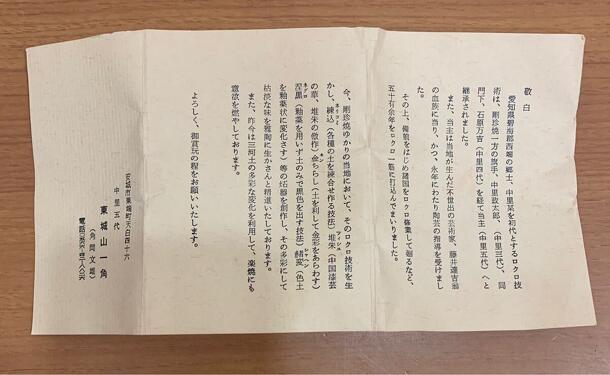 敬白
愛知県碧海郡西端の郷士、中里某を初代とするロクロ技
術は、剛珍焼一方の旗手、中里政太郎、(中里三代)、同
門下、石原万吉(中里四代)を経て当主(中里五代)へと
継承されました。
また、当主は当地が生んだ不世出の芸術家、藤井達吉翁
の血族に当り、かつ、永年にわたり陶芸の指導を受けまし
た。
その上、備前をはじめ諸国をロクロ修業して廻るなど、
五十有余年をロクロ一筋に打込んでまいりました。
今、剛珍焼ゆかりの当地において、そのロクロ技術を生
かし、練込(各種の土を練合せ作る技法)堆朱(中国漆芸
の華、堆朱の倣作)金ちらし(土を利して金彩をあらわす)
涅黒(釉薬を用いず土のみで黒色を出す技法)赭変(色土
を釉薬状に変化さす)等の炻器を創作し、その多彩にして
枯淡な味を雅陶に生かさんと精進いたしております。
また、昨今は三河土の多彩な変化を利用して、楽焼にも
意欲を燃やしております。
よろしく、御賞玩の程をお願いいたします。
安城市東端町天白四十六
中里五代
東城山一角
(角岡文雄)
電話